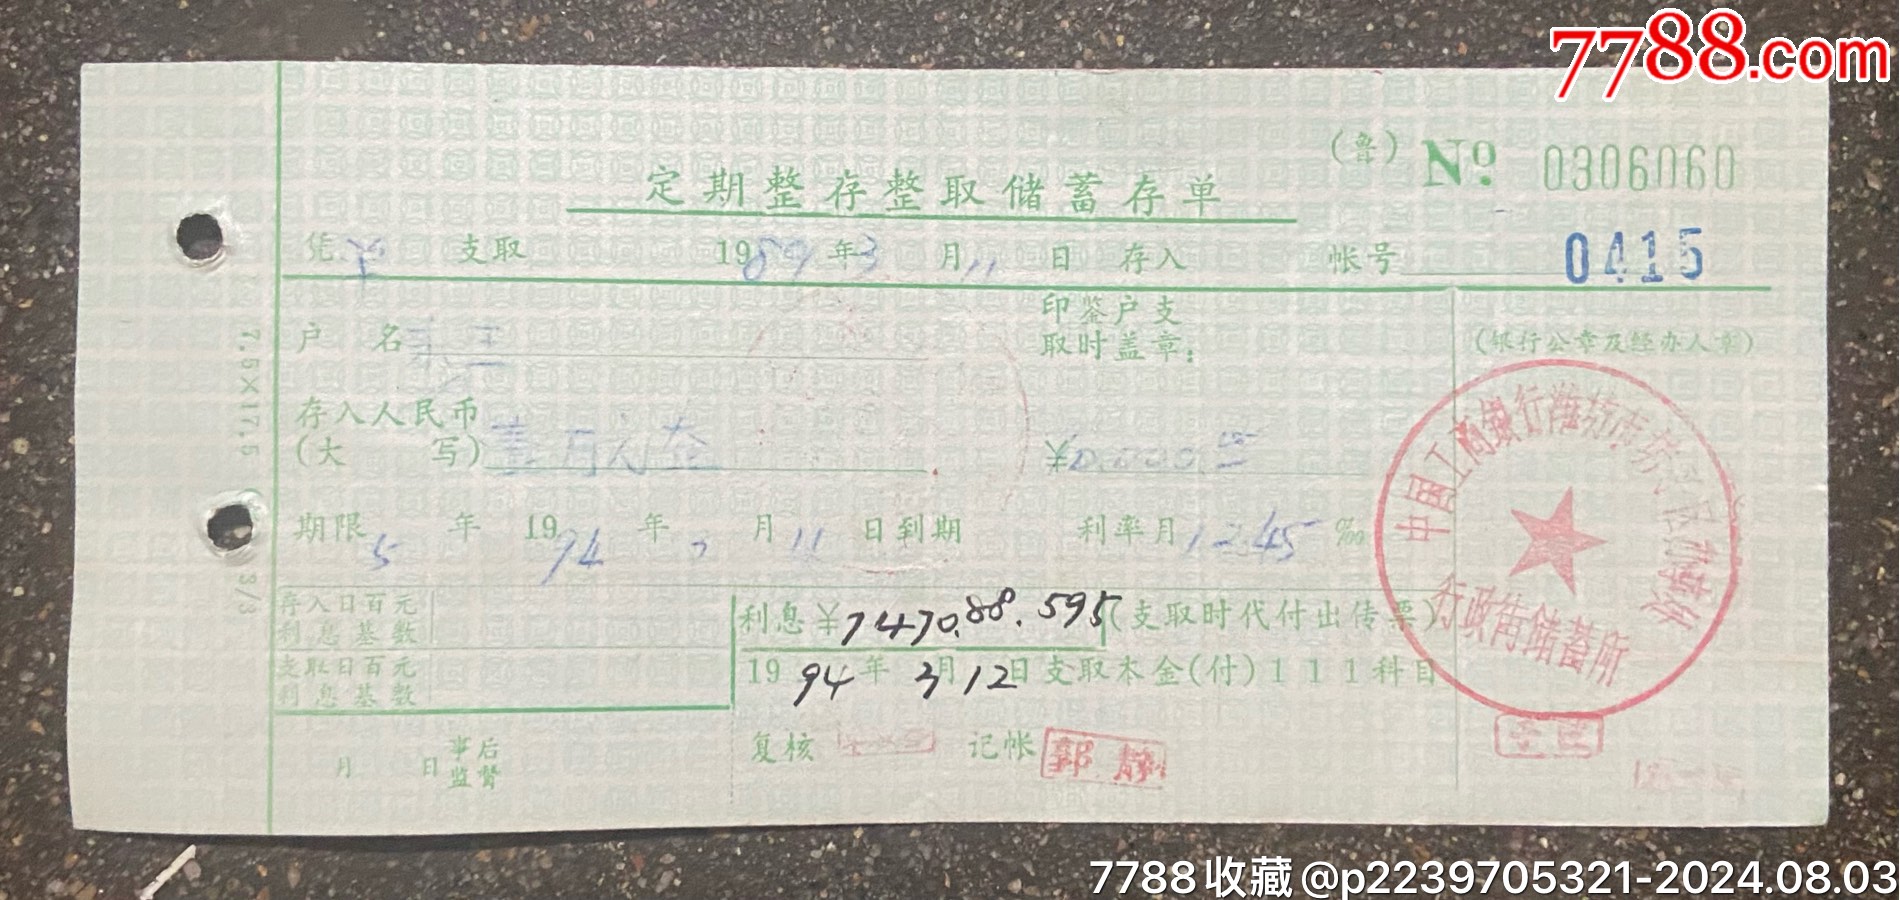 7788.com
(鲁) Nº 0306060
定期整存整取储蓄存单
凭 支取 1989年3月11日 存入 帐号 0415
户 名
印鉴户支
取时盖章:
(银行公章及经办人章)
存入人民币
(大 写) 壹万元整 ¥10,000.00
期限5年 1994年3月11日到期 利率月12.45‰
存入日百元
利息基数
支取日百元
利息基数
利息¥7470.88.595 (支取时代付出传票)
1994年3月12日支取本金(付)111科目
月 日 事后
监督
复核 记帐 郭静
中国工商银行潍坊市坊子区
行政街储蓄所
7.5×17.5
3/3
7788收藏@p2239705321-2024.08.03